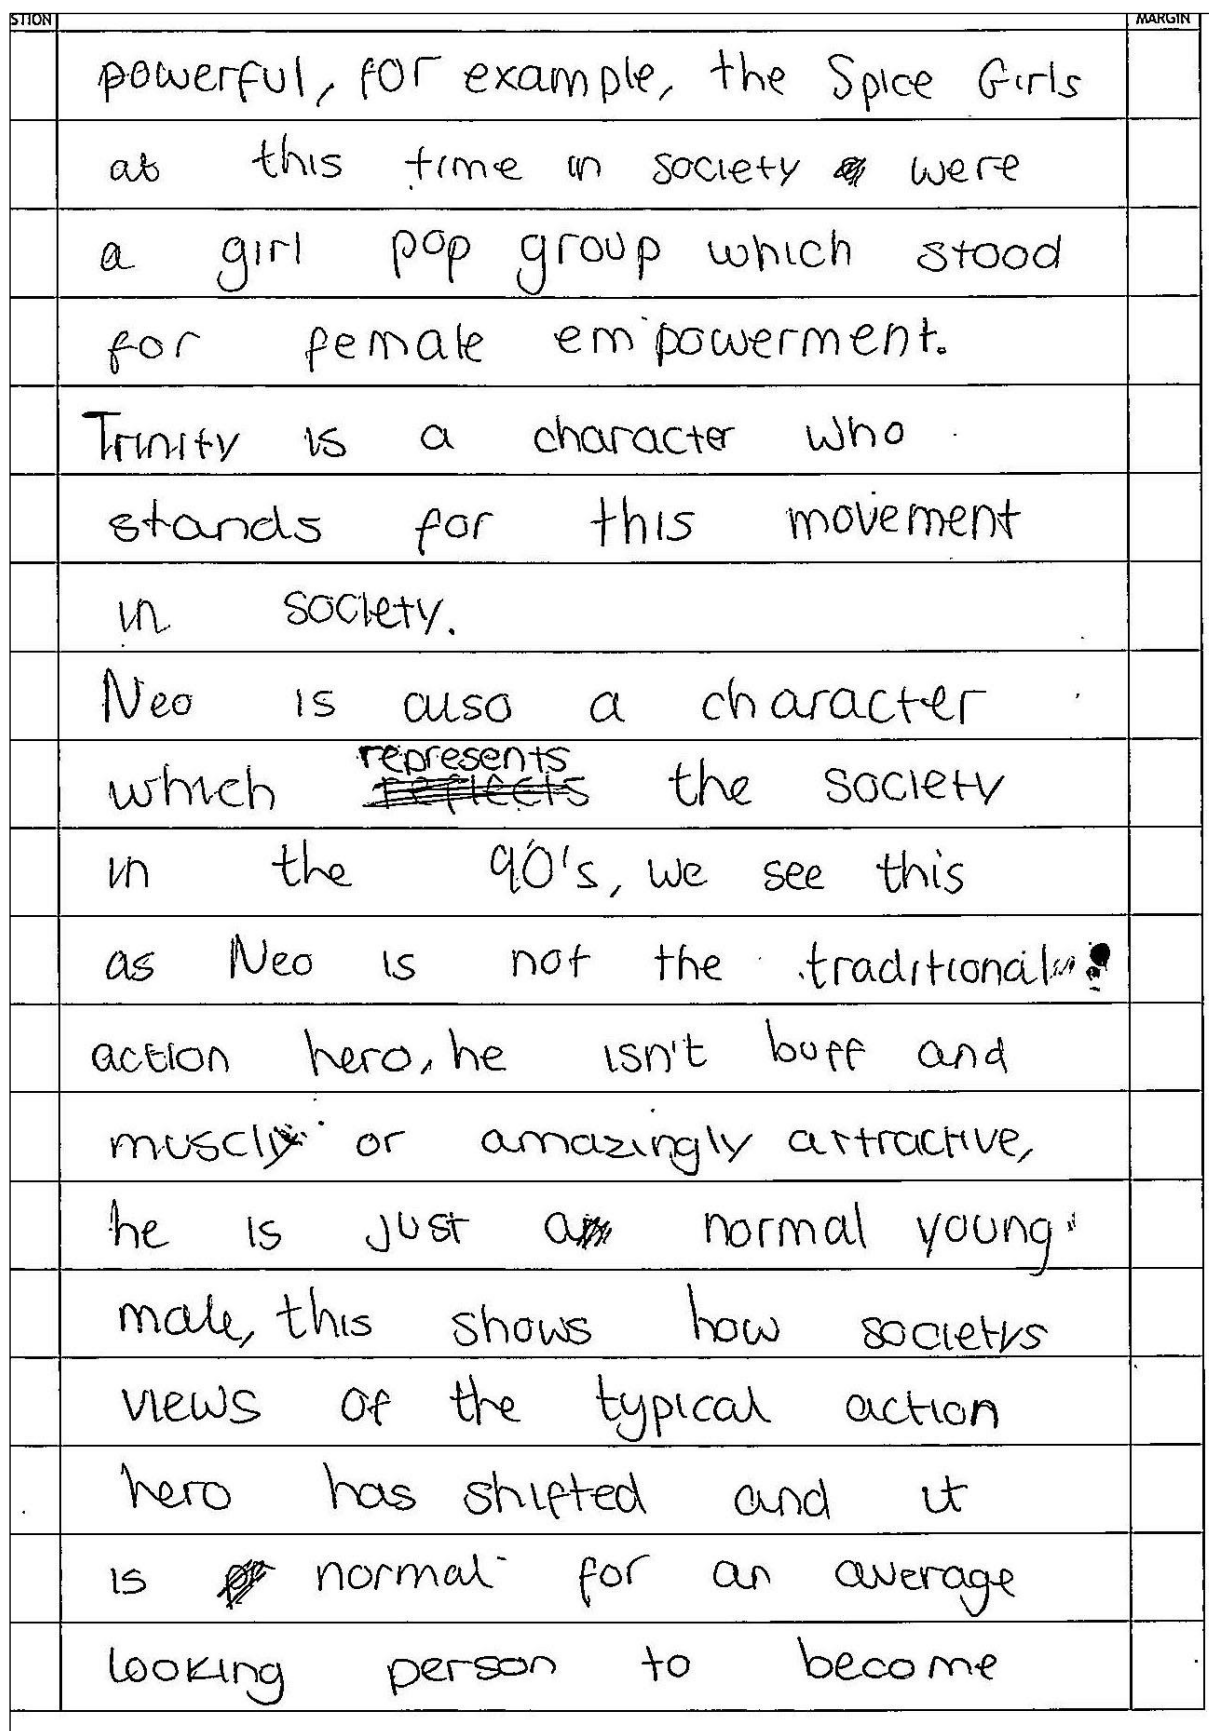 STION MARGIN
powerful, for example, the Spice Girls
at this time in society were
a girl pop group which stood
for female empowerment.
Trinity is a character who
stands for this movement
in society.
Neo is also a character
represents
which reflects the society
in the 90's, we see this
as Neo is not the traditional
action hero, he isn't buff and
muscly or amazingly attractive,
he is just a normal young
male, this shows how societys
views of the typical action
hero has shifted and it
is normal for an average
looking person to become